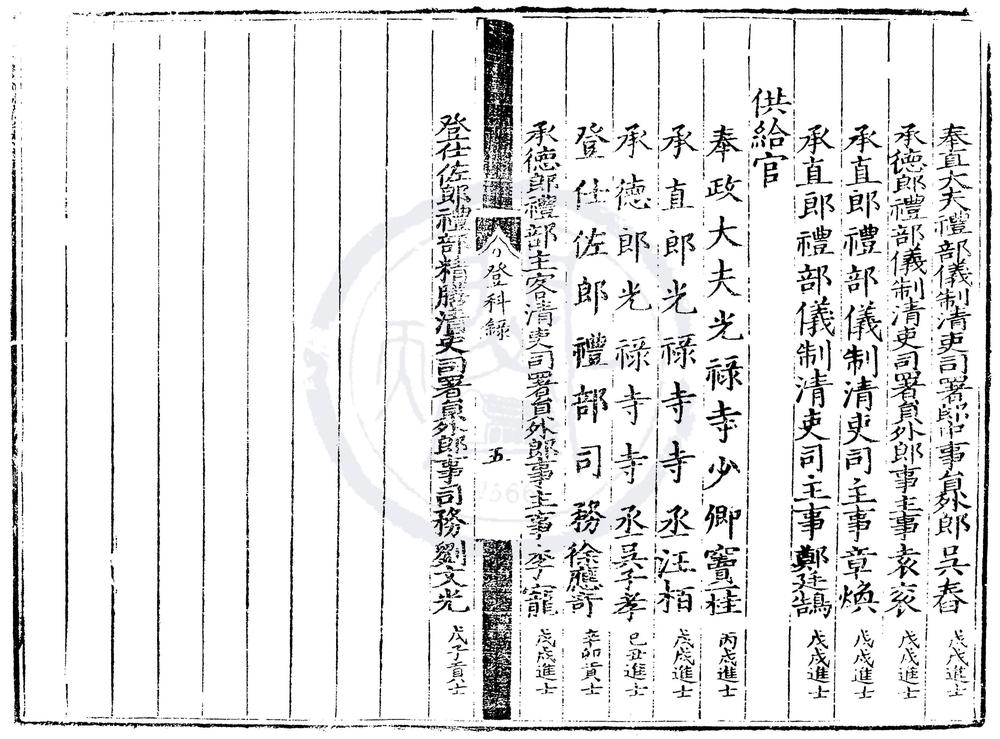 奉直大夫禮部儀制清吏司署郎中事員外郎吳春 戊戌進士
承德郎禮部儀制清吏司署員外郎事主事袁袠 戊戌進士
承直郎禮部儀制清吏司主事章煥 戊戌進士
承直郎禮部儀制清吏司主事鄭廷鵠 戊戌進士
供給官
奉政大夫光祿寺少卿竇一桂 丙戌進士
承直郎光祿寺寺丞汪栢 戊戌進士
承德郎光祿寺寺丞吳子孝 己丑進士
登仕佐郎禮部司務徐應 辛卯貢士
承德郎禮部主客清吏司署員外郎事主事李寵 戊戌進士
登科錄
五
登仕佐郎禮部精膳清吏司署員外郎事司務劉文光 戊子貢士